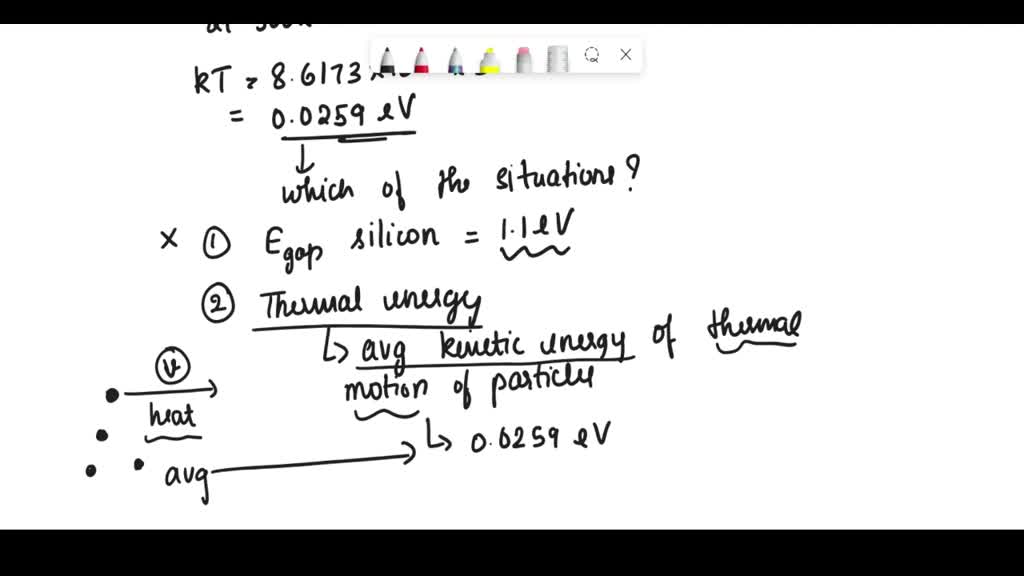 kT = 8.6173
= 0.0259 eV
which of the situations?
X ① Egap silicon = 1.1eV
② Thermal energy
↳ avg kinetic energy of thermal
motion of particle
v
heat
↳ 0.0259 eV
avg